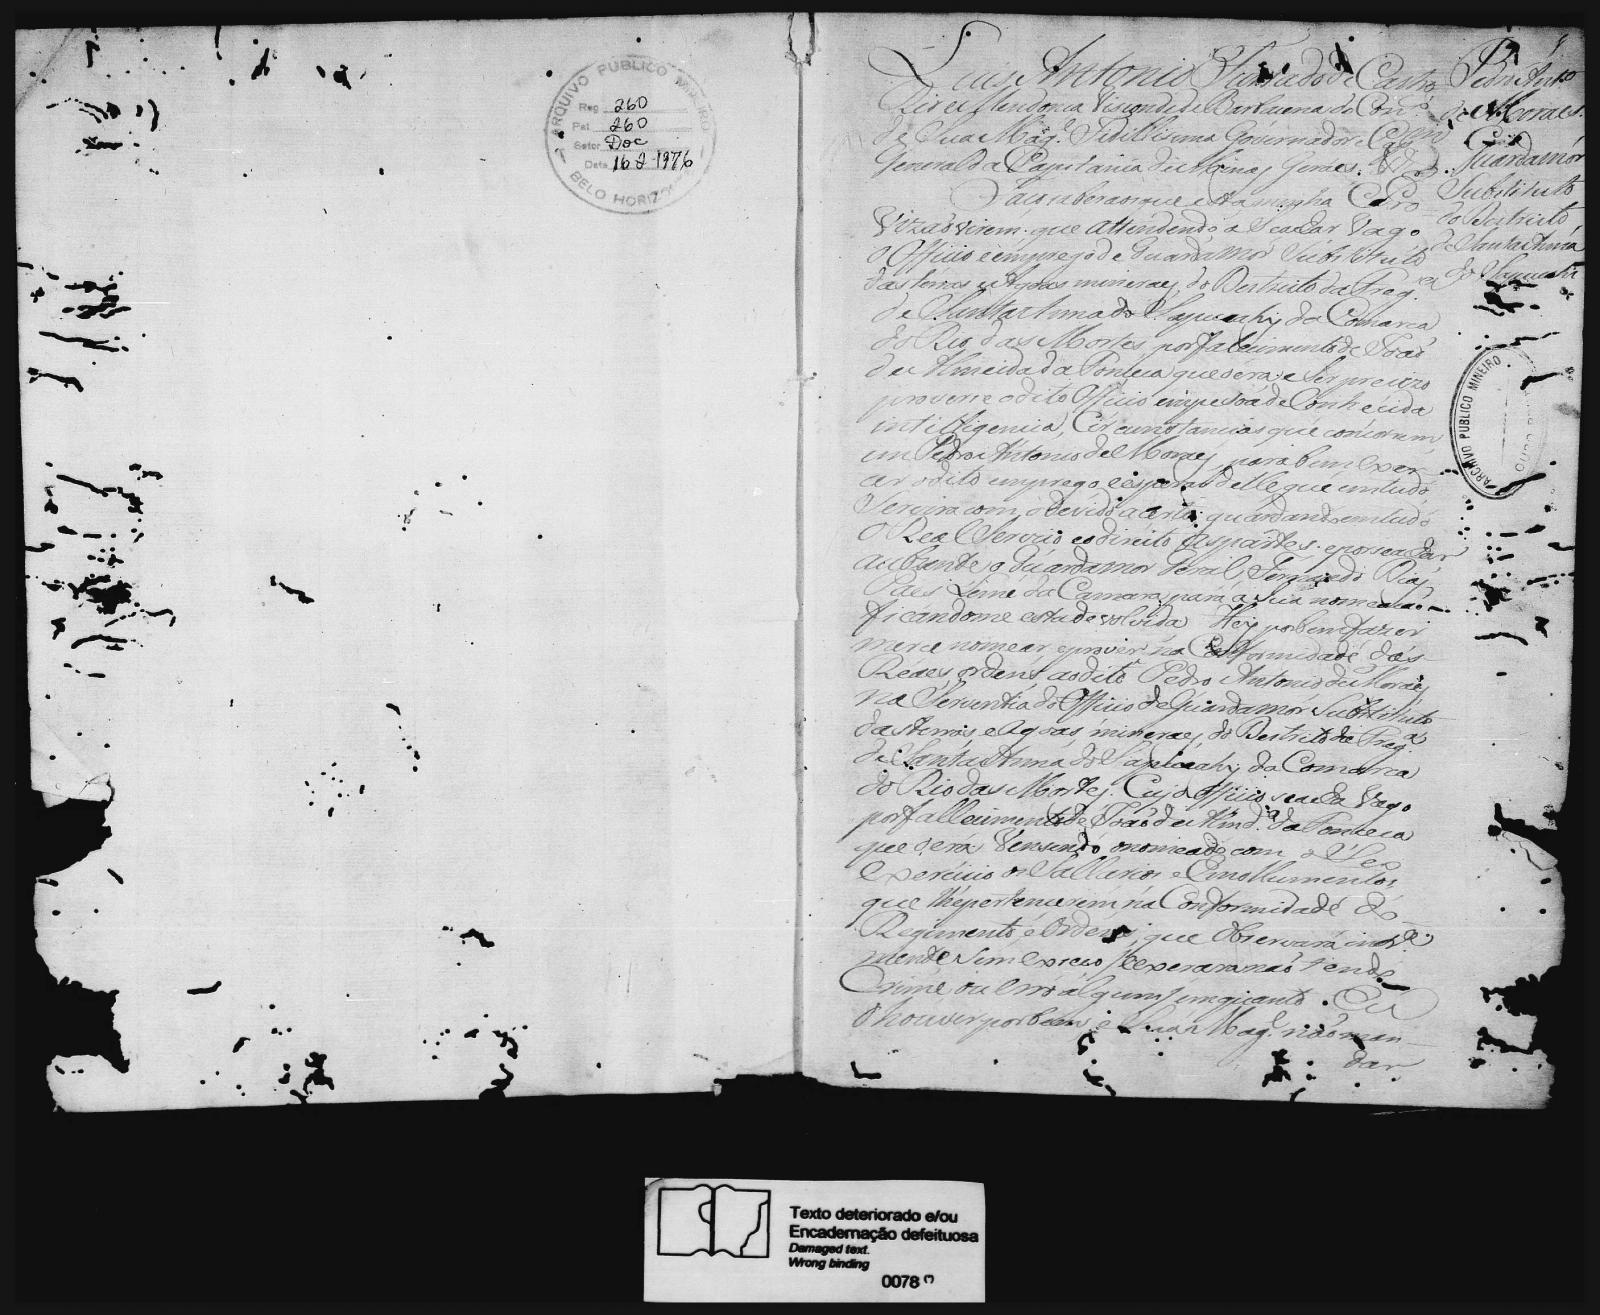 ARQUIVO PÚBLICO MINEIRO
Reg 260
Pat 260
Setor Doc
Data 16 2 1976
BELO HORIZ
Luis Antonio Furtado de Castro
Rio e Mendonca Visconde de Barbacena do Con.º
de Sua Mag.e Fidellissima Governador e Cap.m
General da Capitania de Minas Geraes.
Faço saber aos que esta minha C Pro
vizaõ virem. que attendendo a Seachar Vago
o Officio e emprego de Guardamor Substituto
das terras e Agoas mineraes do Destricto da Freg.a
de Santa Anna do Sapucahy da Comarca
do Rio das Mortes por falecimento de Joaõ
de Almeida da Fonseca que o era e Ser precizo
proverse o dito Officio em pesoa de Conhecida
intilligencia, Circunstancias que concorrem
em Pedro Antonio de Moraes para bem Exer-
cer o dito emprego, e esperar delle que em tudo
Servira com o devido acerto guardando em tudo
o Real Serviço e o direito as partes. e por se achar
auzente o Guardamor Geral, Fernando Dias
Paes Leme da Camara para a Sua nomeaçaõ
ficandome esta devolvida Hey por bem fazer
merce nomear e prover na Conformidade das
Reaes ordens ao dito Pedro Antonio de Moraes
na Serventia do Officio de Guardamor Substituto
das terras e Agoas mineraes do Destrito da Freg.a
de Santa Anna do Sapucahy da Comarca
do Rio das Mortes. Cujo Officio seacha Vago
por fallecimento de Joaõ de Almd.a da Fonseca
que o era Vensendo o nomeado com o Seu
Exercicio os Sallarios e Emollumentos
que lhe pertencerem na Conformidade do
Regimento, e Ordens, que Observará invi.e
mente Sem excesso
Crime ou erro algum emquanto Eu
o houver por bem e Sua Mag.e naõ man-
dar
Pedro Ant.o
de Moraes.
Guardamór
Substituto
do Destricto
de Santa Anna
do Sapucahi
ARCHIVO PUBLICO MINEIRO
OURO
Texto deteriorado e/ou
Encadernação defeituosa
Damaged text.
Wrong binding
0078 (*)